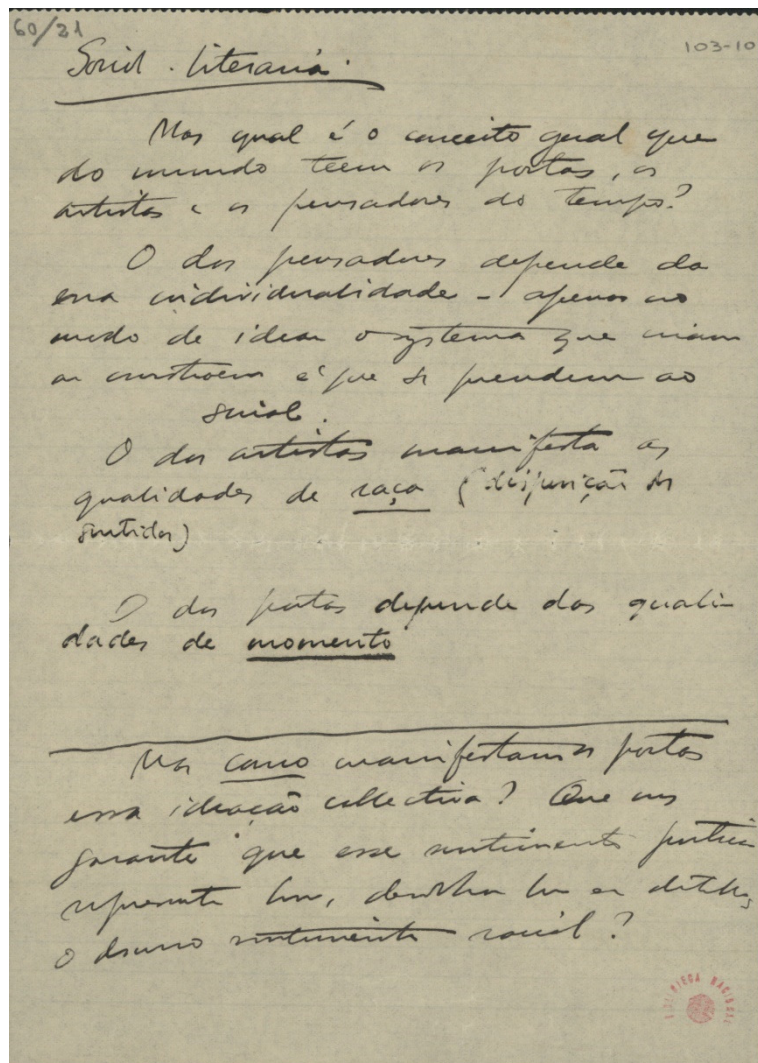 60/21
103-10
Sociol. Literaria.
Mas qual é o conceito geral que
do mundo teem os poetas, os
artistas e os pensadores do tempo?
O dos pensadores depende da
sua individualidade - apenas no
modo de idear o systema que criam
ou constroem é que se prendem ao
social.
O dos artistas manifesta as
qualidades de raça (disjuncção dos
sentidos)
O dos poetas depende das quali-
dades de momento
Mas como manifestam os poetas
essa ideação collectiva? Que nos
garante que esse sentimento poetico
represente bem, bem em detalhe,
o sentimento social?
BIBLIOTECA NACIONAL